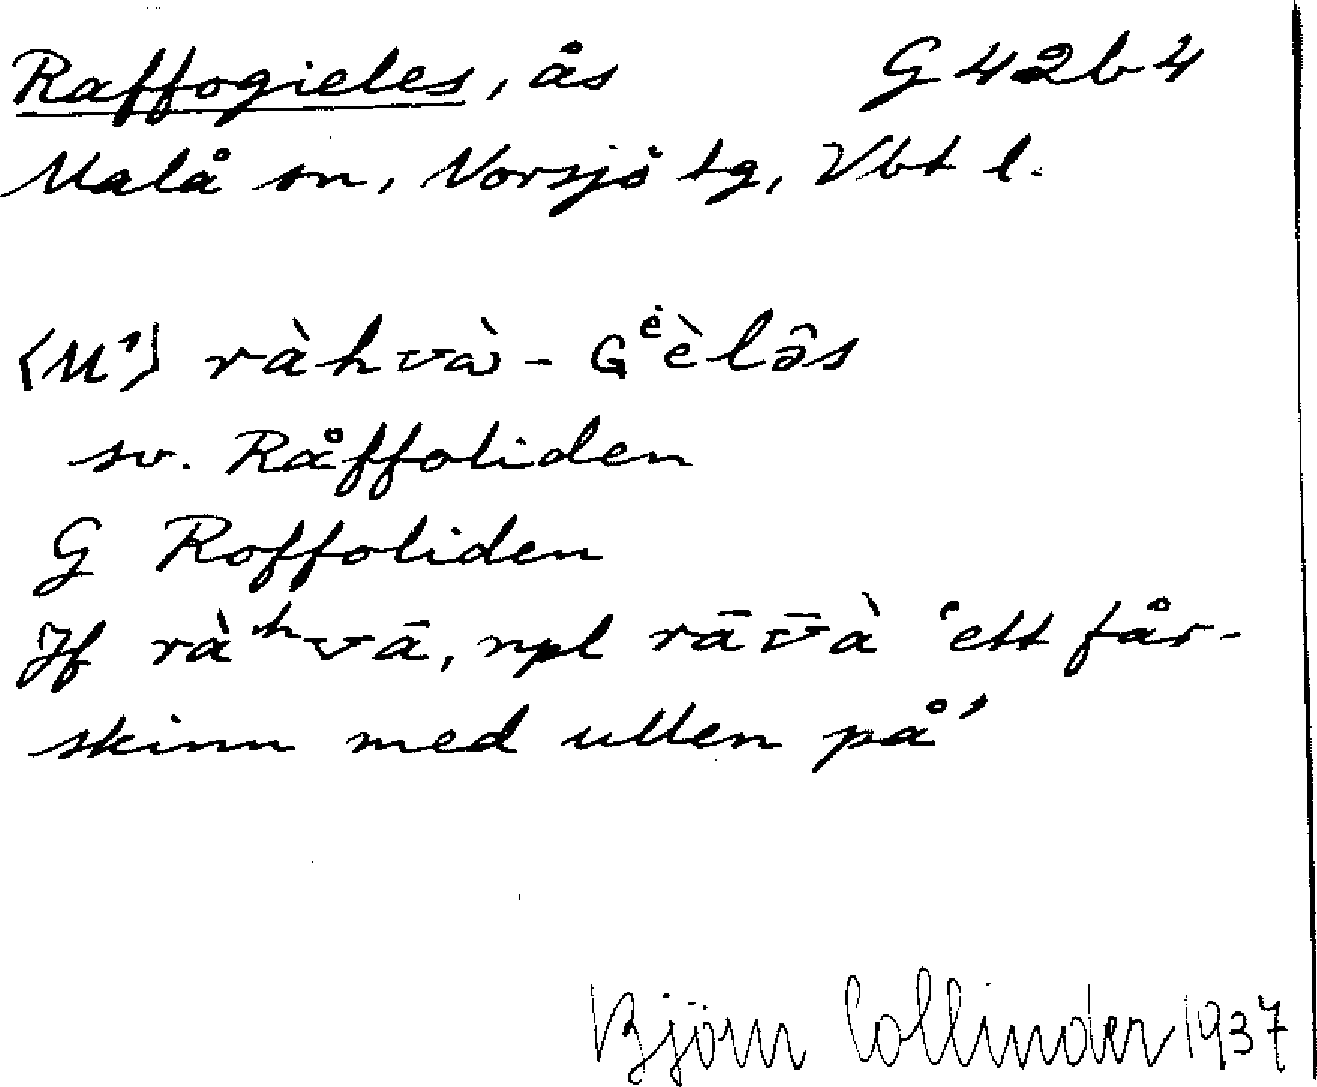 Raffogieles, ås G42b4
Malå sn, Norsjö tg, Vbt l.
⟨M¹⟩ ràhvà - Gᵉ̇èlə̂s
sv. Råffoliden
G Roffoliden
Jf ràʰvā, npl rāv̄à 'ett får-
skinn med ullen på'
Björn Collinder 1937